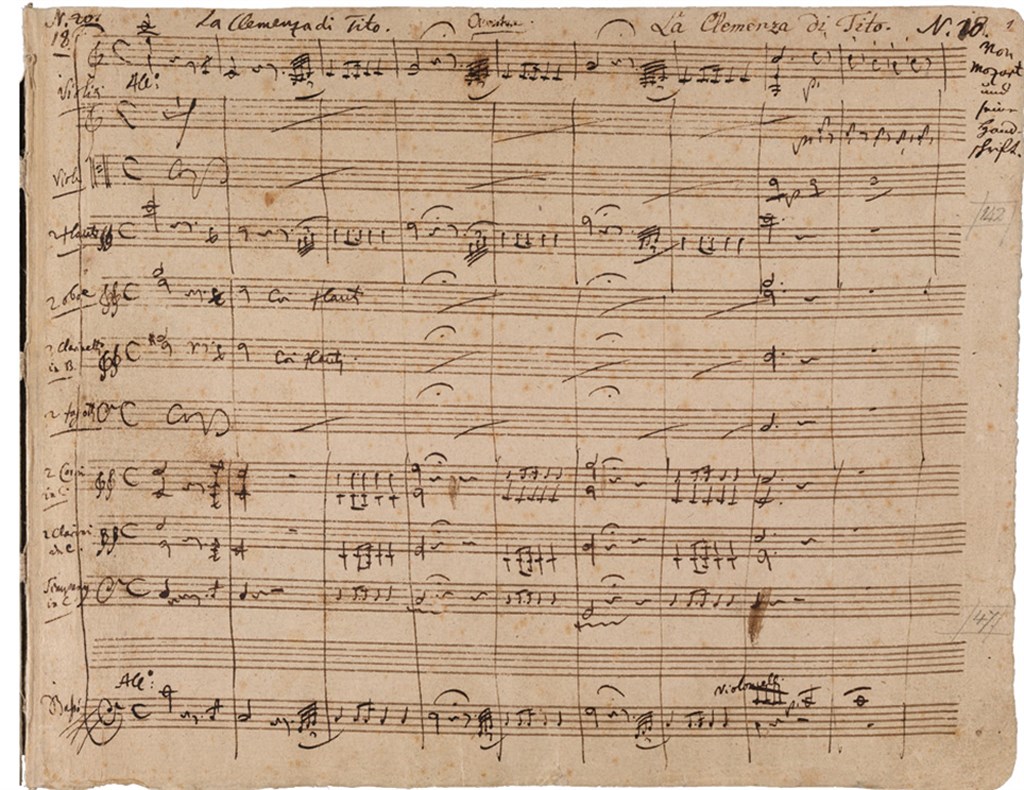 N. 20. La Clemenza di Tito. Overtura. La Clemenza di Tito. N. 18. 1
18
Von
Mozart
und
seine
Hand-
schrift.
Violin
All:º
Viole
2 flauti
142
2 oboe
Coi flauti
2 Clarinetti
in B.
Coi flauti
2 fagotti
2 Corni
in C.
2 Clarini
in C.
Timpany
in C
47
All:º
Violoncelli
p
Bassi